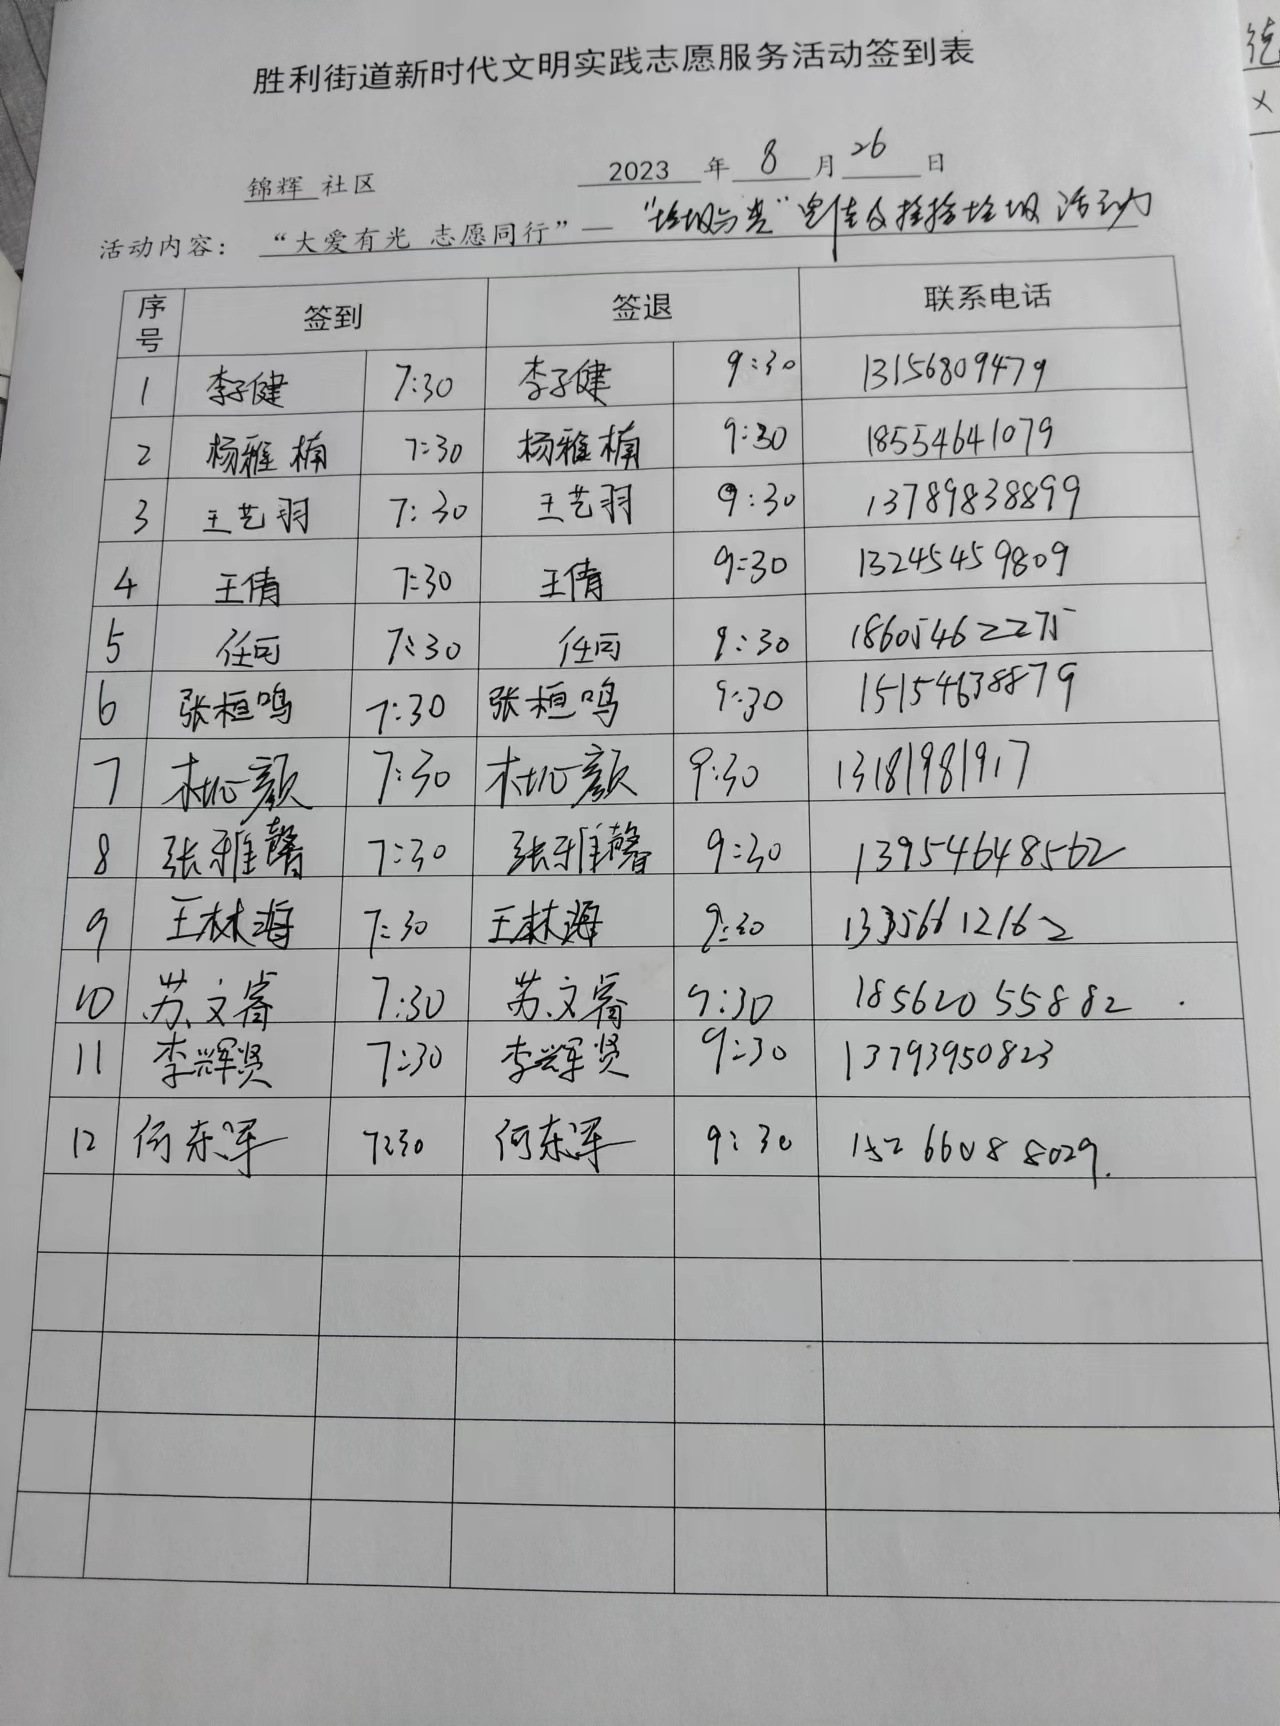 胜利街道新时代文明实践志愿服务活动签到表
锦辉 社区 2023 年 8 月 26 日
活动内容： “大爱有光 志愿同行”— “垃圾分类”宣传及捡拾垃圾 活动
序号 签到 签退 联系电话
1 李子健 7:30 李子健 9:30 13156809479
2 杨雅楠 7:30 杨雅楠 9:30 18554641079
3 王艺羽 7:30 王艺羽 9:30 13789838899
4 王倩 7:30 王倩 9:30 13245459809
5 任可 7:30 任可 9:30 18605462275
6 张桓鸣 7:30 张桓鸣 9:30 15154638879
7 杜心颜 7:30 杜心颜 9:30 13181981917
8 张雅馨 7:30 张雅馨 9:30 13954648562
9 王林海 7:30 王林海 9:30 13356612162
10 苏文睿 7:30 苏文睿 9:30 18562055882
11 李辉贤 7:30 李辉贤 9:30 13793950823
12 何东泽 7:30 何东泽 9:30 15266088029